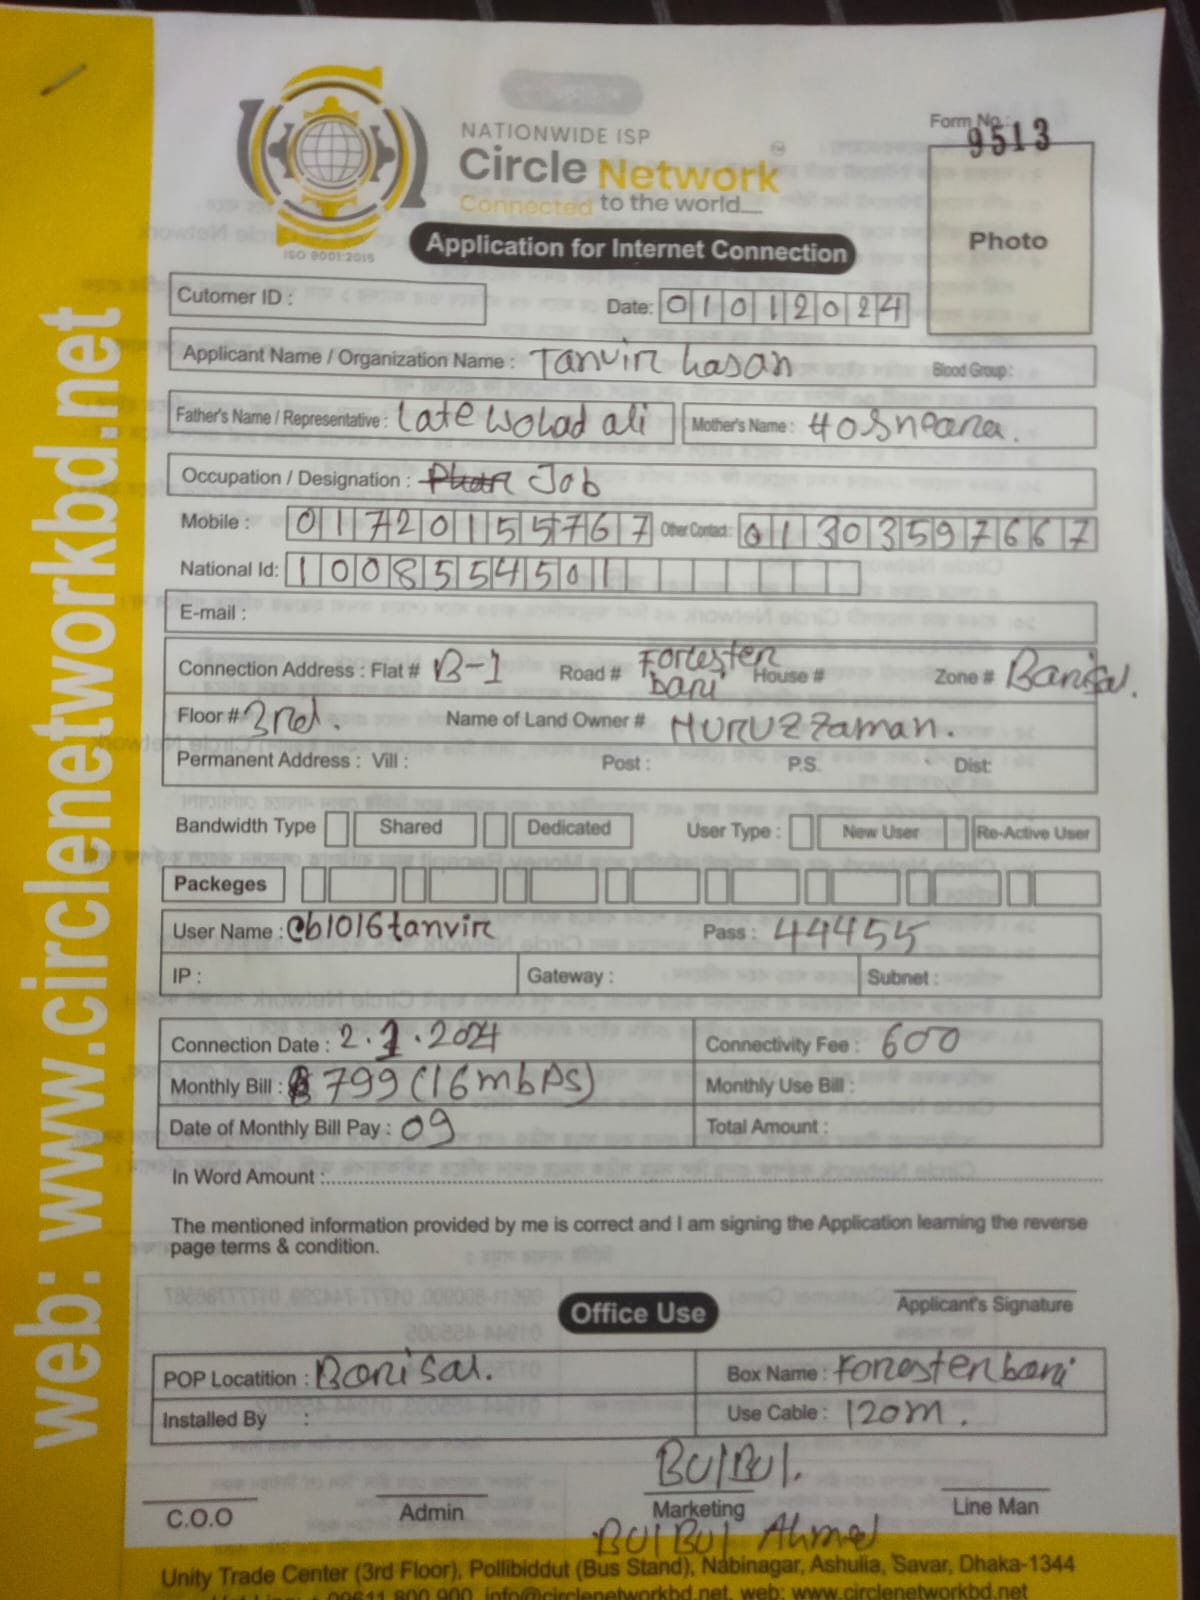 Form No.: 9513
NATIONWIDE ISP
Circle Network
Connected to the world....
ISO 9001:2015
Application for Internet Connection
Photo
Cutomer ID :
Date: 01012024
Applicant Name / Organization Name : Tanvir hasan Blood Group:
Father's Name / Representative : Late Wolad ali Mother's Name : Hosneara.
Occupation / Designation : Job
Mobile : 01720155767 Other Contact: 01303597667
National Id: 1008554501
E-mail :
Connection Address : Flat # B-1 Road # Forester bari House # Zone # Barisal.
Floor # 3rd. Name of Land Owner # NURUZZaman.
Permanent Address : Vill : Post : P.S. Dist:
Bandwidth Type Shared Dedicated User Type : New User Re-Active User
Packeges
User Name : cb1016tanvir Pass : 44455
IP : Gateway : Subnet :
Connection Date : 2.1.2024 Connectivity Fee : 600
Monthly Bill : 799 (16mbps) Monthly Use Bill :
Date of Monthly Bill Pay : 09 Total Amount :
In Word Amount :
The mentioned information provided by me is correct and I am signing the Application learning the reverse
page terms & condition.
Applicant's Signature
Office Use
POP Locatition : Barisal. Box Name : Foresterbari
Installed By : Use Cable : 120m.
BulBul.
C.O.O Admin Marketing Line Man
BulBul Ahmed
Unity Trade Center (3rd Floor), Pollibiddut (Bus Stand), Nabinagar, Ashulia, Savar, Dhaka-1344
09611 800 900, info@circlenetworkbd.net, web: www.circlenetworkbd.net
web: www.circlenetworkbd.net